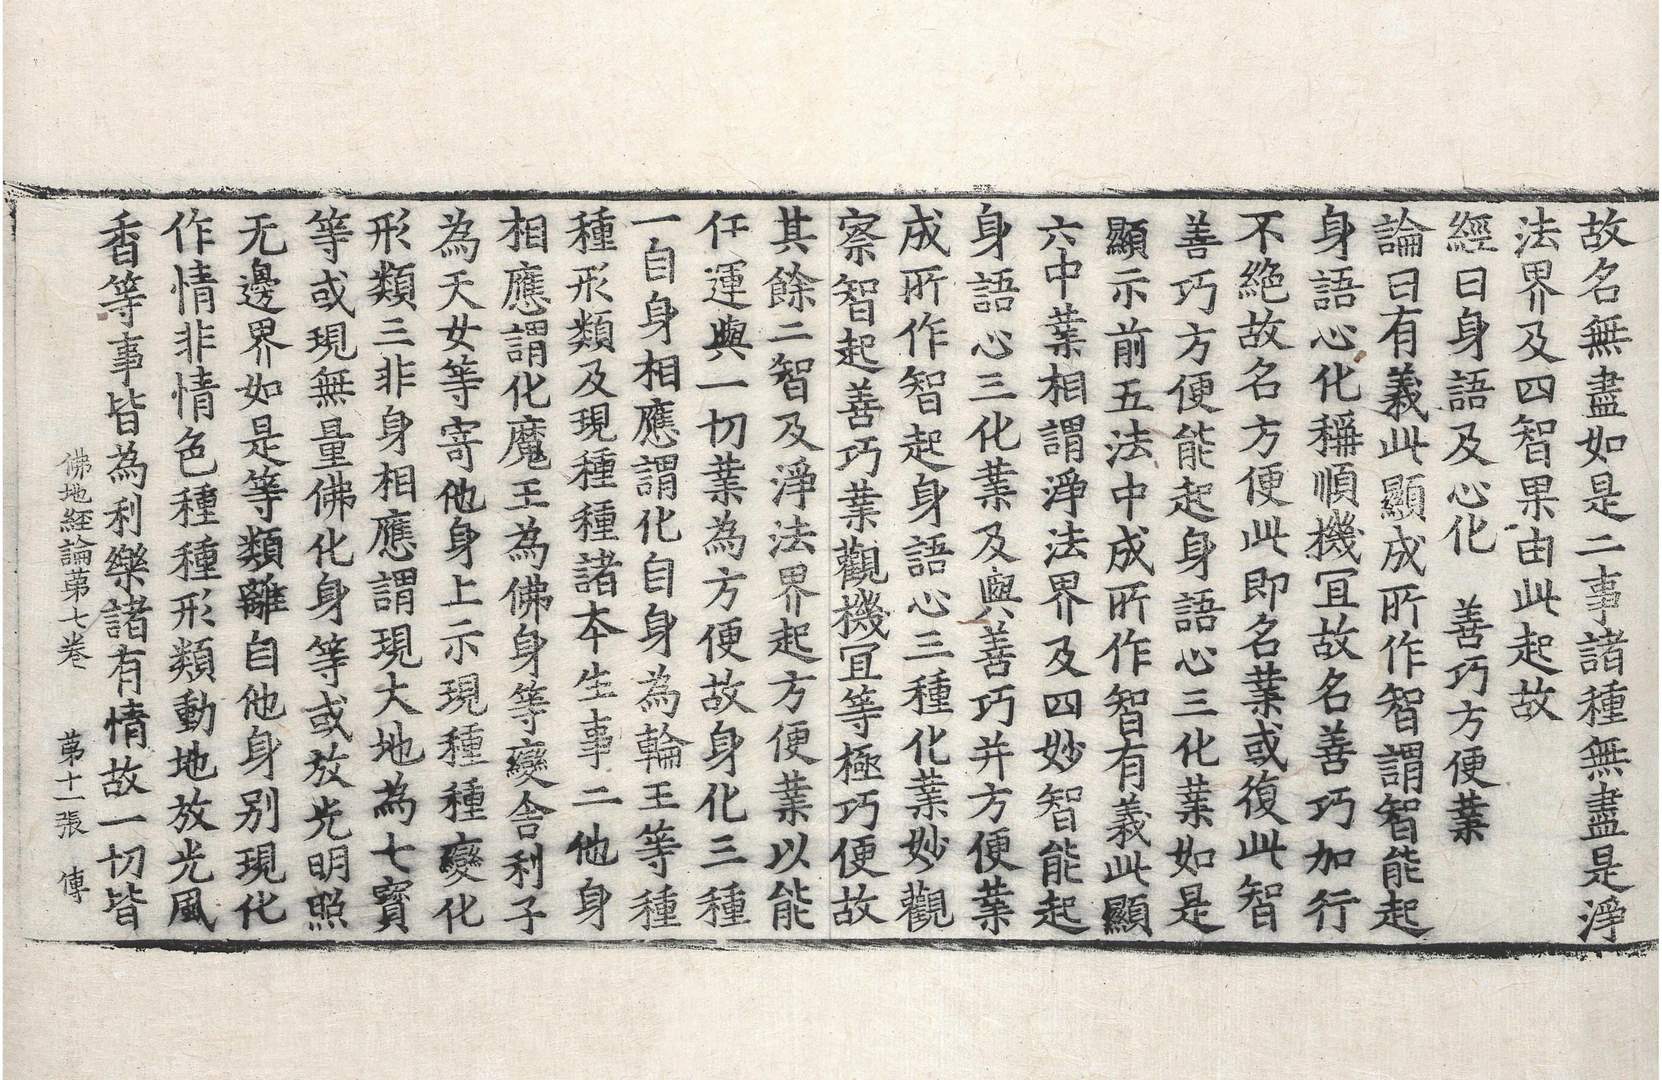 故名無盡如是二事諸種無盡是淨
法界及四智果由此起故
經曰身語及心化　善巧方便業
論曰有義此顯成所作智謂智能起
身語心化稱順機宜故名善巧加行
不絶故名方便此即名業或復此智
善巧方便能起身語心三化業如是
顯示前五法中成所作智有義此顯
六中業相謂淨法界及四妙智能起
身語心三化業及與善巧并方便業
成所作智起身語心三種化業妙觀
察智起善巧業觀機宜等極巧便故
其餘二智及淨法界起方便業以能
任運與一切業為方便故身化三種
一自身相應謂化自身為輪王等種
種形類及現種種諸本生事二他身
相應謂化魔王為佛身等變舍利子
為天女等寄他身上示現種種變化
形類三非身相應謂現大地為七寶
等或現無量佛化身等或放光明照
无邊界如是等類離自他身別現化
作情非情色種種形類動地放光風
香等事皆為利樂諸有情故一切皆
佛地経論苐七卷　苐十一張　傅